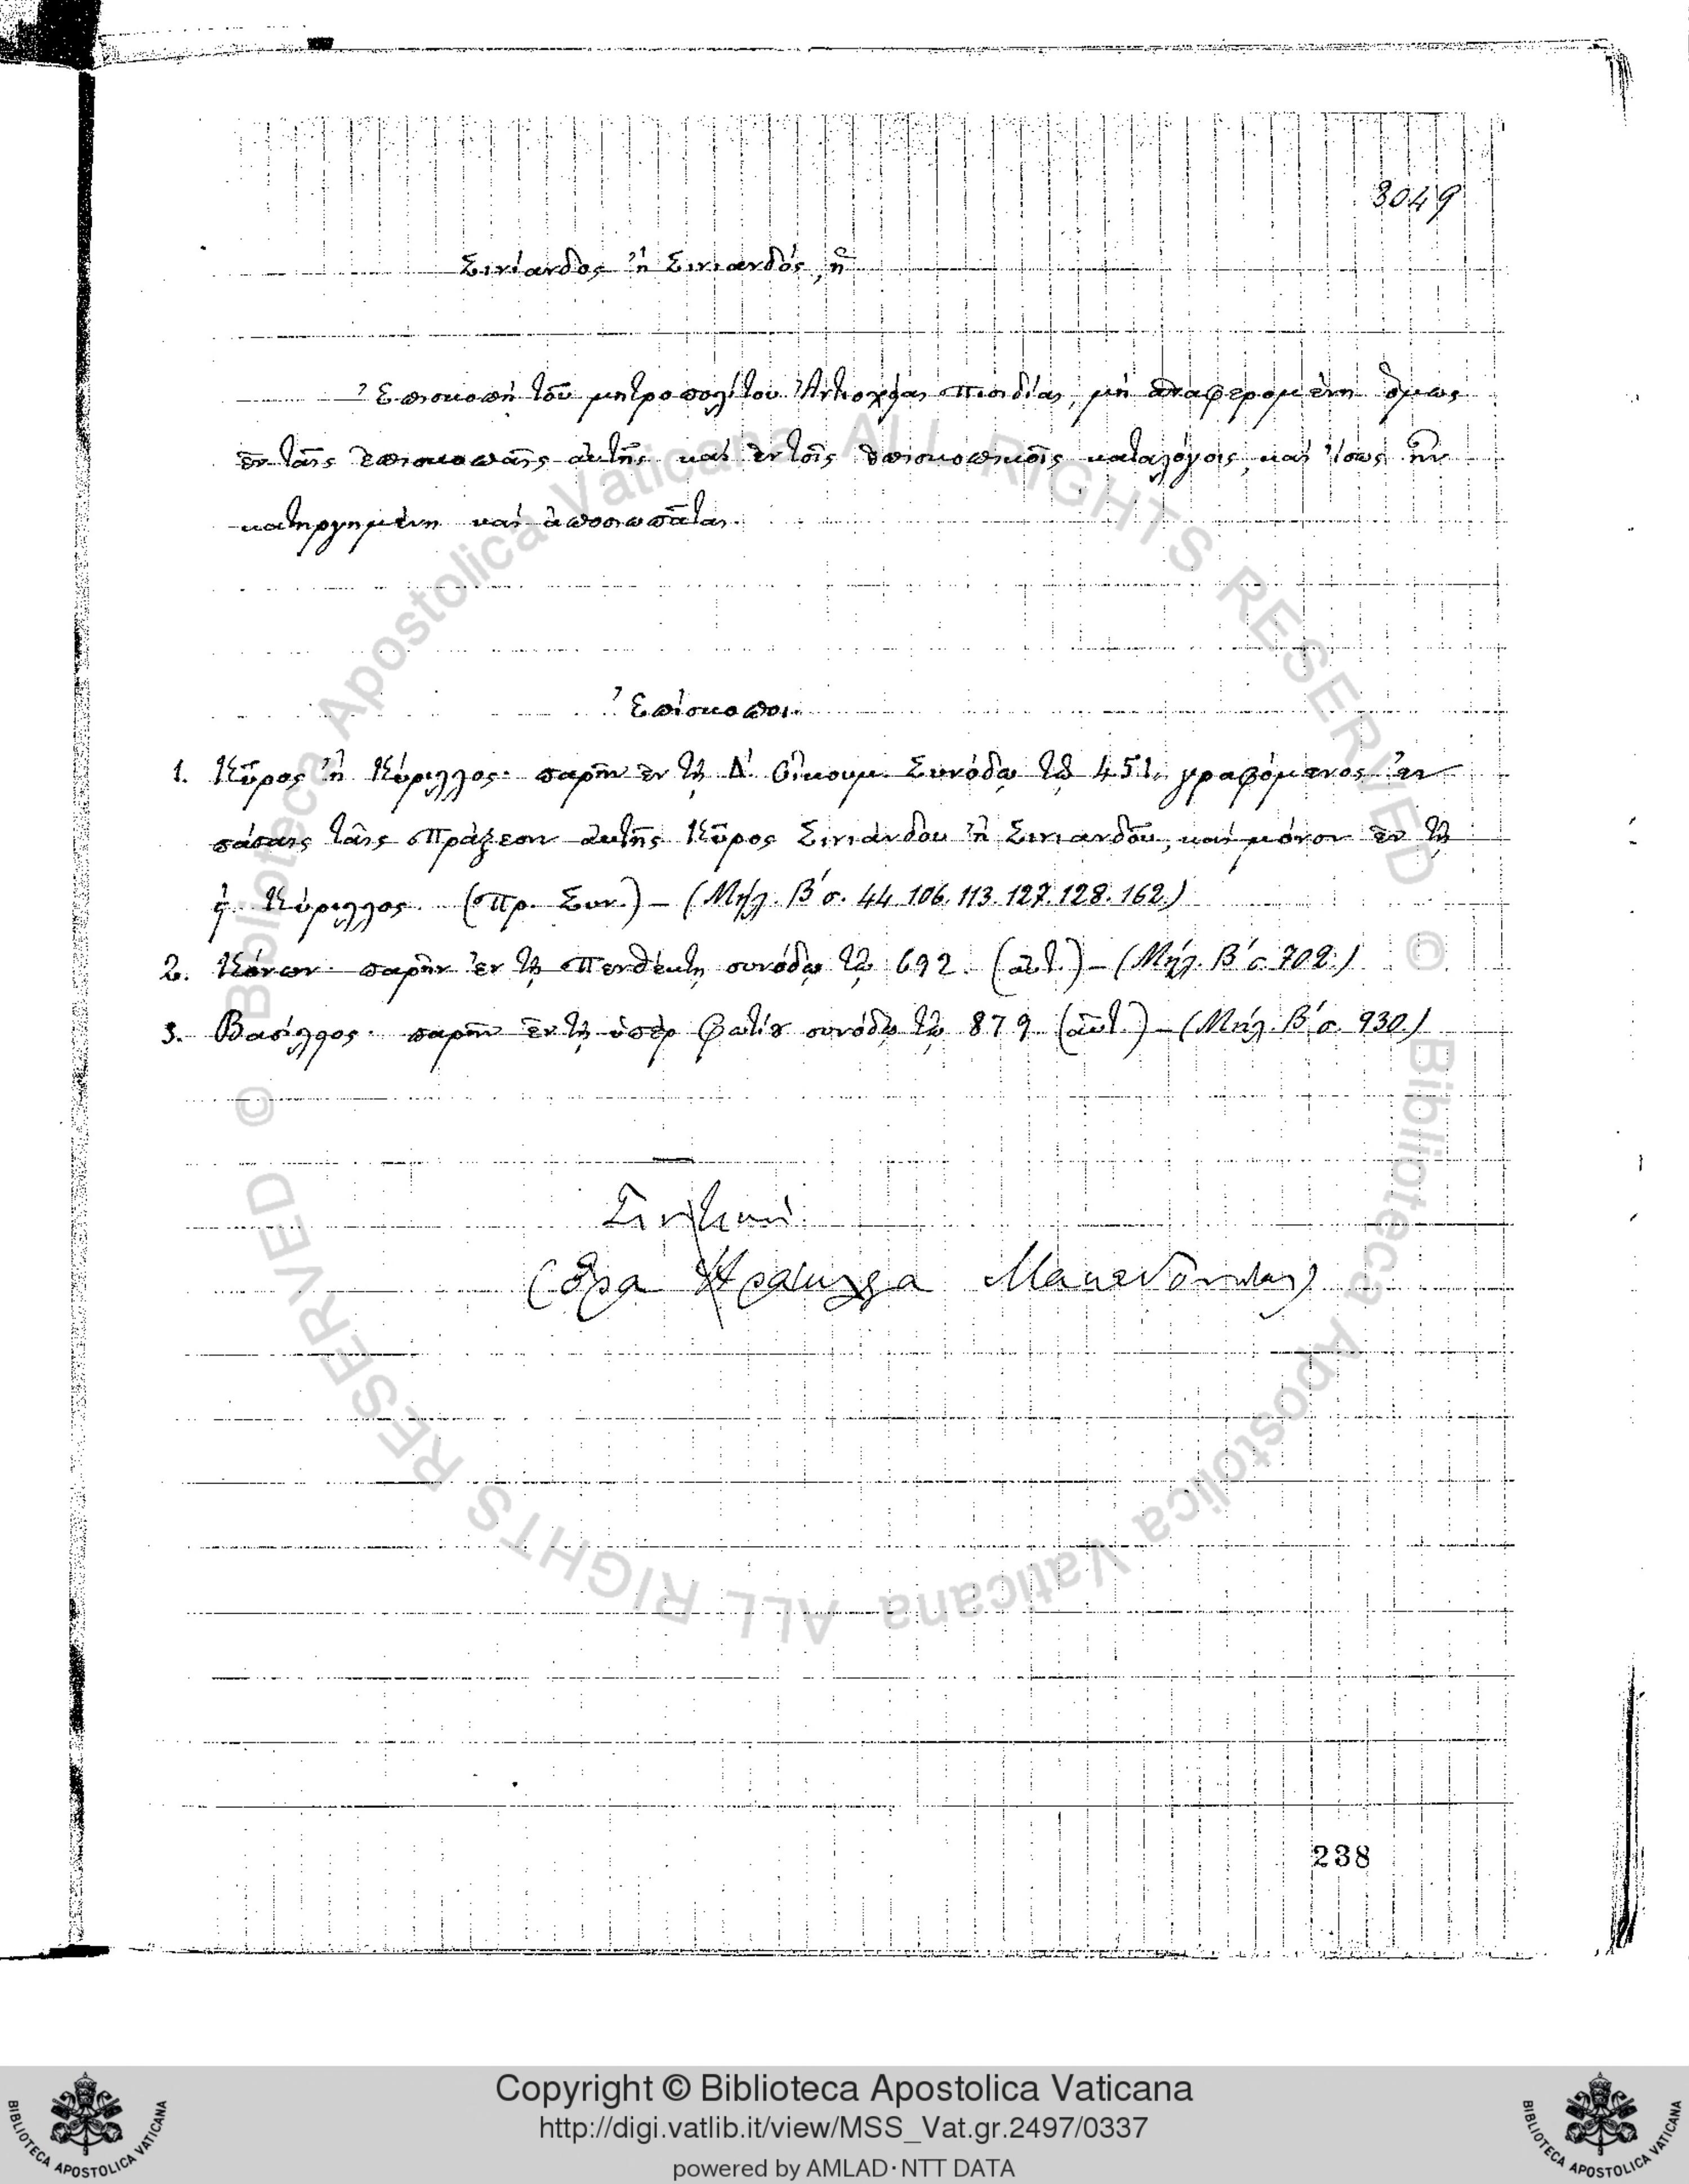 3049
Σινίανδος ἢ Σινιανδός, ἡ
Ἐπισκοπὴ τοῦ μητροπολίτου Ἀντιοχείας Πισιδίας, μὴ ἀναφερομένη ὅμως
ἐν ταῖς ἐπισκοπαῖς αὐτῆς καὶ ἐν τοῖς ἐπισκοπικοῖς καταλόγοις, καὶ ἴσως ἦν
κατηργημένη καὶ ἀποσιωπᾶται.
Ἐπίσκοποι.
1. Κῦρος ἢ Κύριλλος· παρῆν ἐν τῇ Δ΄ Οἰκουμ. Συνόδῳ τῷ 451, γραφόμενος ἐν
πάσαις ταῖς Πράξεσιν αὐτῆς Κῦρος Σινιάνδου ἢ Σινιανδοῦ, καὶ μόνον ἐν τῇ
Κύριλλος. (Πρ. Συν.) – (Μήλ. Β΄ σ. 44. 106. 113. 127. 128. 162.)
2. Κόνων· παρῆν ἐν τῇ Πενθέκτῃ συνόδῳ τῷ 692. (αὐτ.) – (Μήλ. Β΄ σ. 702.)
3. Βασίλειος· παρῆν ἐν τῇ ὑπὲρ Φωτίου συνόδῳ τῷ 879 (αὐτ.) – (Μήλ. Β΄ σ. 930.)
Σιντική
(ὅρα Ἡράκλεια Μακεδονίας)
238
© Biblioteca Apostolica Vaticana ALL RIGHTS RESERVED © Biblioteca Apostolica Vaticana ALL RIGHTS RESERVED
Copyright © Biblioteca Apostolica Vaticana
http://digi.vatlib.it/view/MSS_Vat.gr.2497/0337
powered by AMLAD·NTT DATA
BIBLIOTECA APOSTOLICA VATICANA
BIBLIOTECA APOSTOLICA VATICANA